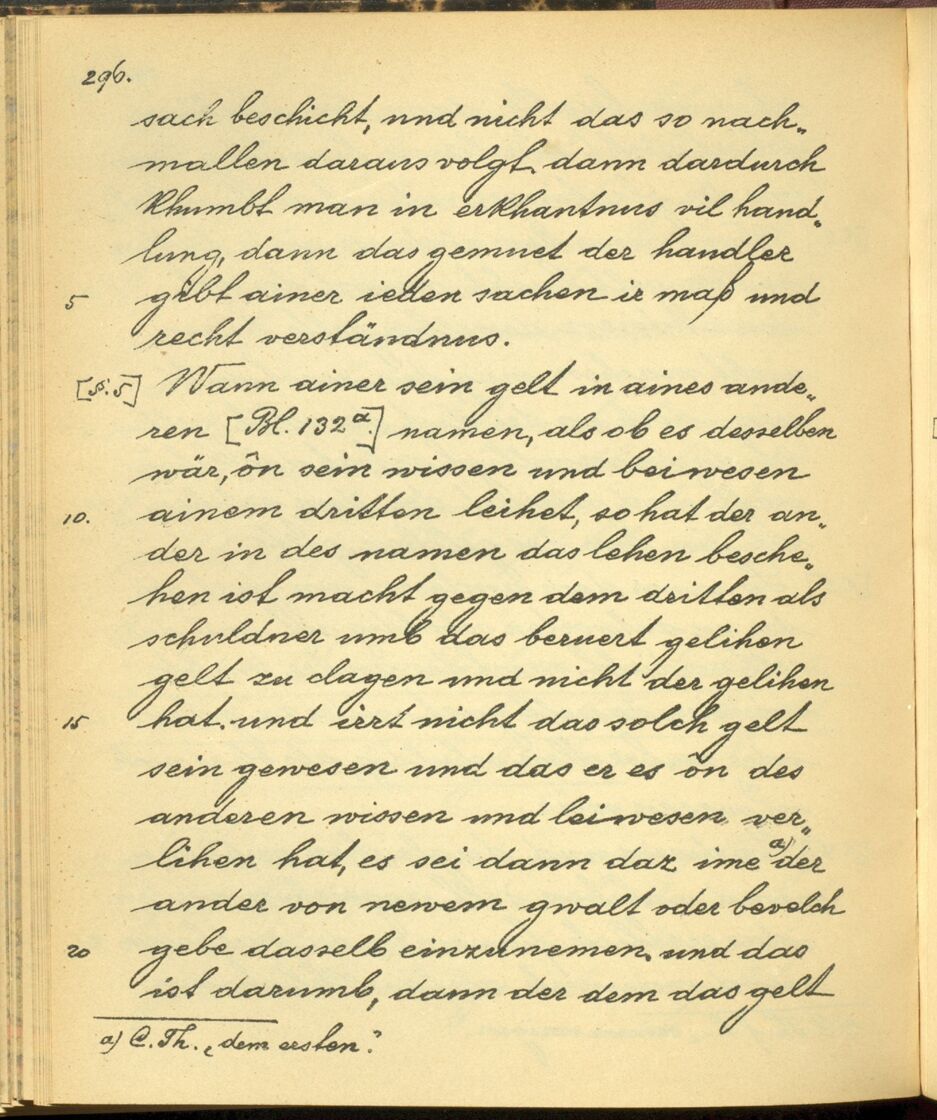 296.
sach beschicht, und nicht das so nach„
mallen daraus volgt. dann dardurch
khumbt man in erkhantnus vil hand„
lung, dann das gemuet der handler
5 gibt ainer ieden sachen ir maß und
recht verständnus.
[§. 5] Wann ainer sein gelt in aines ande„
ren [Bl. 132a.] namen, als ob es desselben
wär, ôn sein wissen und beiwesen
10. ainem dritten leihet, so hat der an„
der in des namen das lehen besche„
hen ist macht gegen dem dritten als
schuldner umb das beruert gelihen
gelt zu clagen und nicht der gelihen
15 hat. und irrt nicht das solch gelt
sein gewesen und das er es ôn des
anderen wissen und beiwesen ver„
lihen hat, es sei dann daz ime a) der
ander von newem gwalt oder bevelch
20 gebe dasselb einzunemen. und das
ist darumb, dann der dem das gelt
a) C. Th. „dem ersten.“